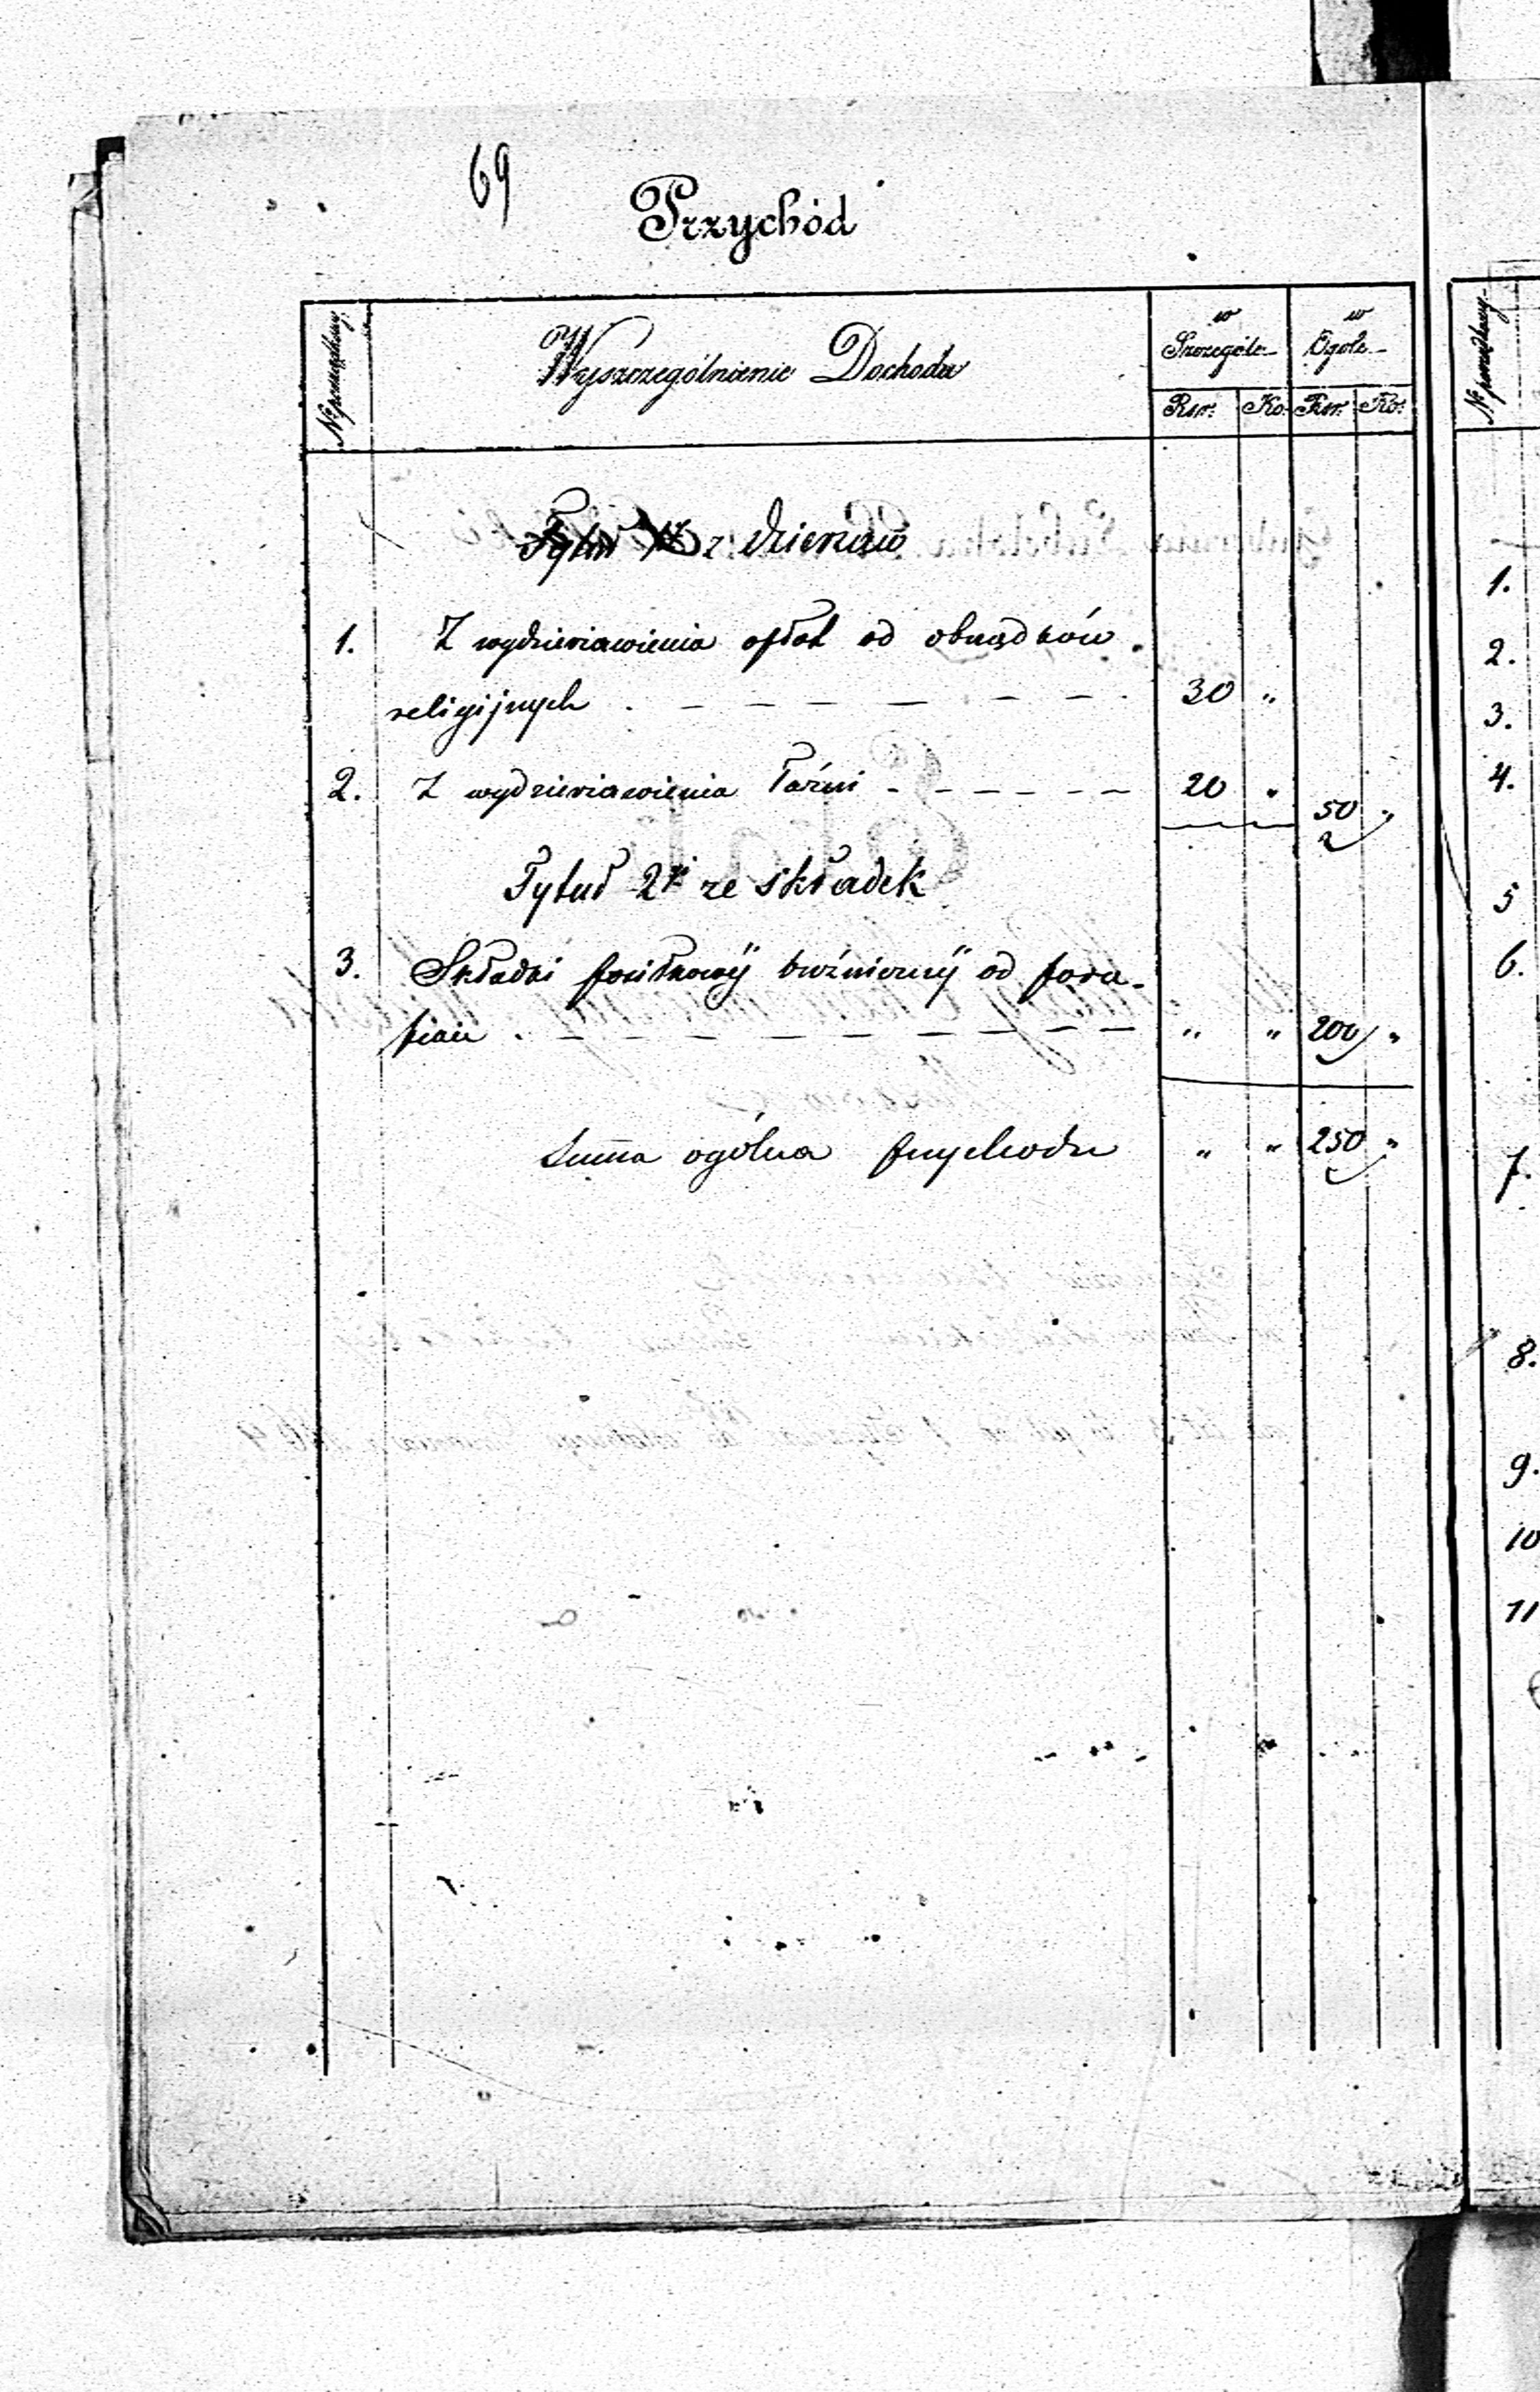 69
Przychód
№ porządkowy
Wyszczególnienie Dochodu
w Szczególe
w Ogóle
Rsr. Ko. Rsr. Ko.
Tytuł z dzierżaw
1. Z wydzierżawienia opłat od obrządków
religijnych . – – – – – – – 30 "
2. Z wydzierżawienia Łaźni – – – – – – 20 " 50 "
Tytuł 2gi ze składek
3. Składki bóźniczny od para-
fian . – – – – – – – – " " 200 "
Summa ogólna przychodu " " 250 "
№ porządkowy
1.
2.
3.
4.
5
6.
7.
8.
9.
10
11